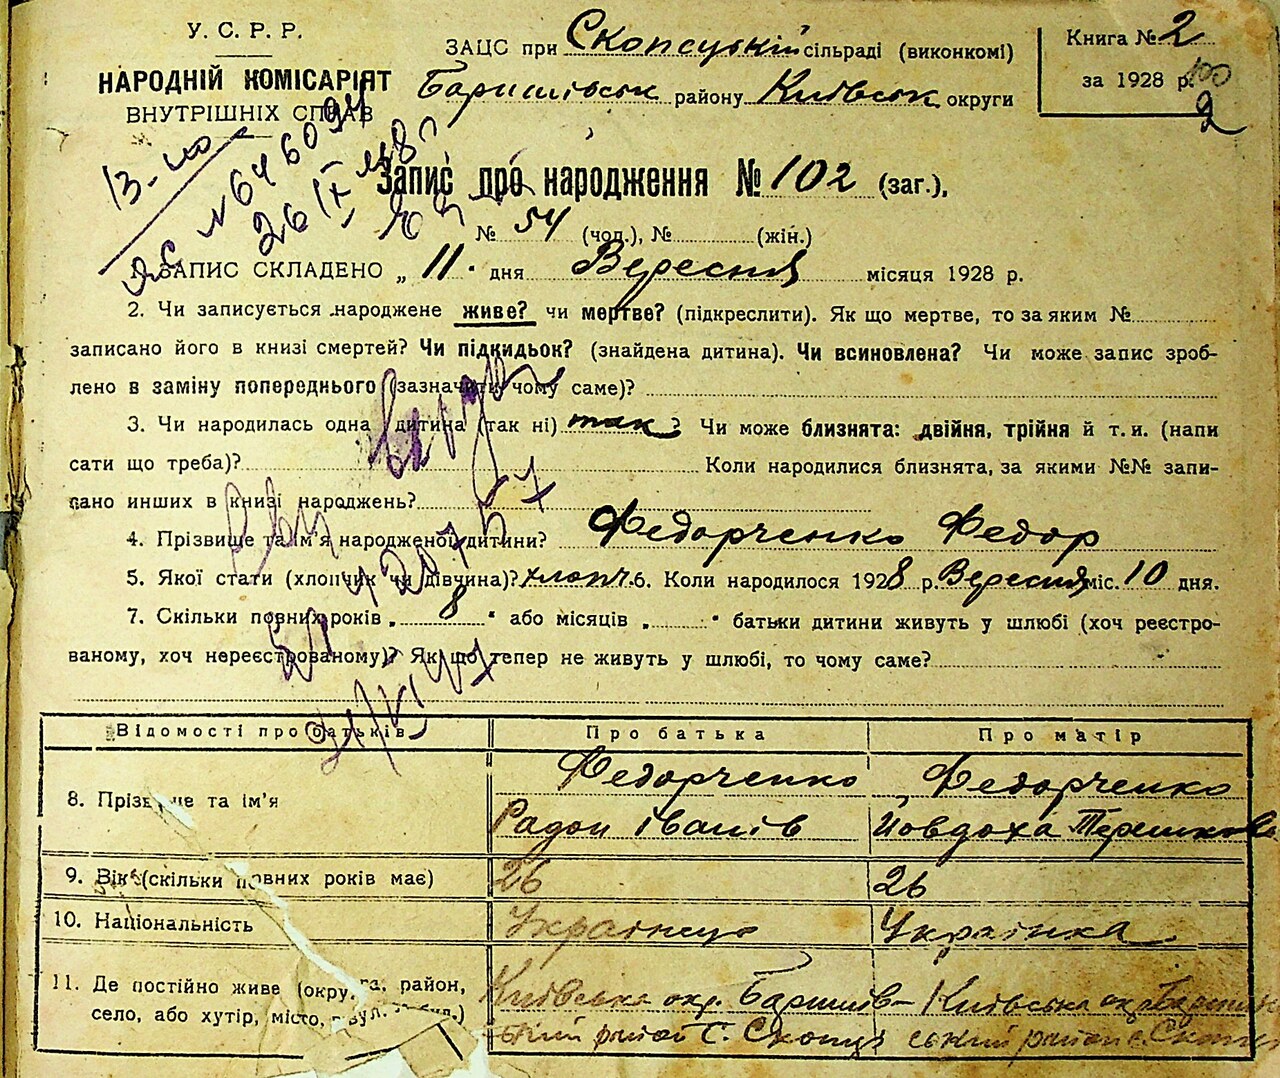 У. С. Р. Р.
НАРОДНІЙ КОМІСАРІЯТ
ВНУТРІШНІХ СПРАВ
ЗАЦС при Скопсуькій сільраді (виконкомі)
Баришівськ району Київськ округи
Книга № 2
за 1928 р.
100
2
13-ю
N 646094
26 IX
Запис про народження № 102 (заг.),
№ 54 (чол.), № (жін.)
ЗАПИС СКЛАДЕНО „ 11 " дня Вересня місяця 1928 р.
2. Чи записується народжене живе? чи мертве? (підкреслити). Як що мертве, то за яким №
записано його в книзі смертей? Чи підкидьок? (знайдена дитина). Чи всиновлена? Чи може запис зроб-
лено в заміну попереднього (зазначити чому саме)?
3. Чи народилась одна дитина (так ні) так? Чи може близнята: двійня, трійня й т. и. (напи
сати що треба)? Коли народилися близнята, за якими №№ запи-
сано инших в книзі народжень?
4. Прізвище та ім'я народженої дитини? Федорченко Федор
5. Якої стати (хлопчик чи дівчина)? хлопч. 6. Коли народилося 1928 р. Вересня міс. 10 дня.
7. Скільки повних років „ 8 " або місяців „ " батьки дитини живуть у шлюбі (хоч реєстро-
ваному, хоч нереєстрованому)? Як що тепер не живуть у шлюбі, то чому саме?
Відомості про батьків Про батька Про матір
8. Прізвище та ім'я Федорченко Федорченко
Радон Іванів Йовдоха Терешкова
9. Вік (скільки повних років має) 26 26
10. Національність Українець Українка
11. Де постійно живе (округа, район, Київська окр. Баришів- Київська окр. Баришів
село, або хутір, місто, вул. ський район с. Скопці ський район с. Скопці